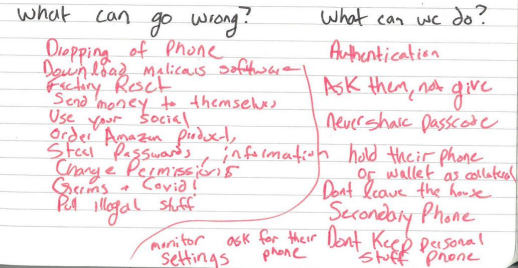 What can go wrong?
Dropping of Phone
Download malicous software
Factory Reset
Send money to themselves
Use your social
Order Amazon product,
Steal Passwords, information
Change Permissions
Germs + Covid!
Put illegal stuff
What can we do?
Authentication
Ask them, not give
Never share passcode
hold their phone
or wallet as collateral
Dont leave the house
Secondary Phone
Dont Keep personal
stuff phone
monitor
settings
ask for their
phone